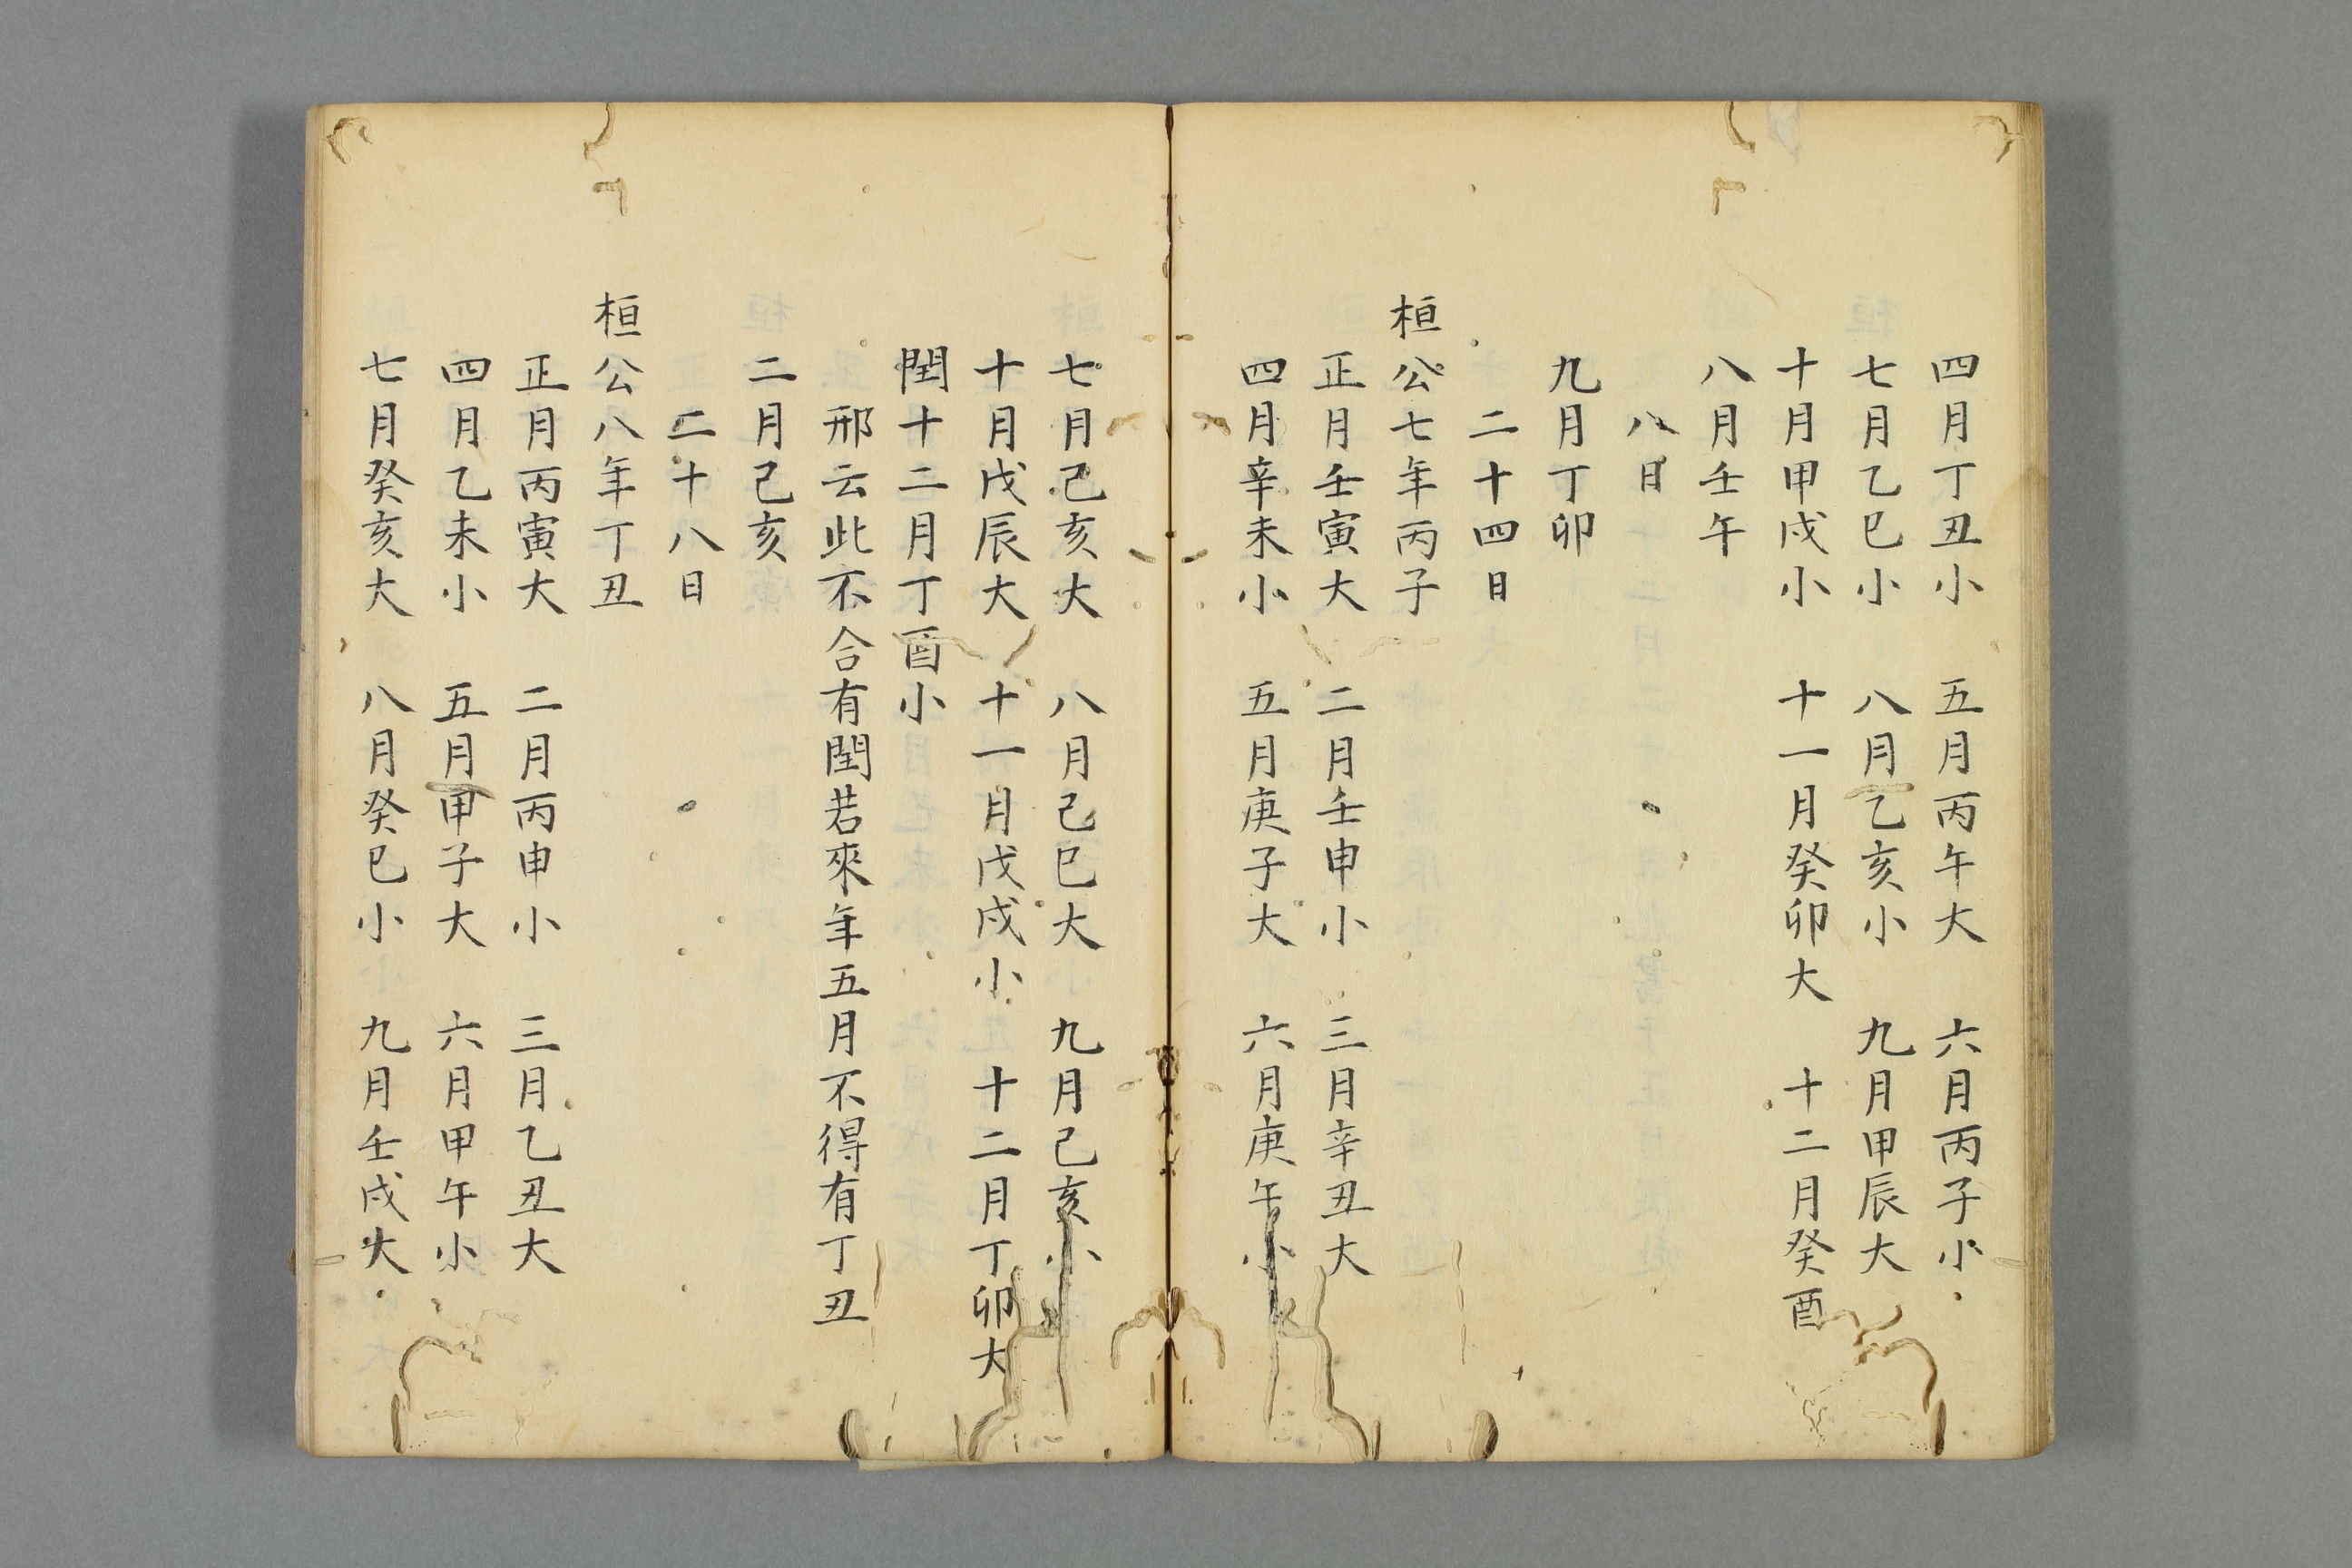 四月丁丑小　五月丙午大　六月丙子小
七月乙巳小　八月乙亥小　九月甲辰大
十月甲戌小　十一月癸卯大　十二月癸酉
八月壬午
八日
九月丁卯
二十四日
桓公七年丙子
正月壬寅大　二月壬申小　三月辛丑大
四月辛未小　五月庚子大　六月庚午小
七月己亥大　八月己巳大　九月己亥小
十月戊辰大　十一月戊戌小　十二月丁卯大
閏十二月丁酉小
邢云此不合有閏若來年五月不得有丁丑
二月己亥
二十八日
桓公八年丁丑
正月丙寅大　二月丙申小　三月乙丑大
四月乙未小　五月甲子大　六月甲午小
七月癸亥大　八月癸巳小　九月壬戌大